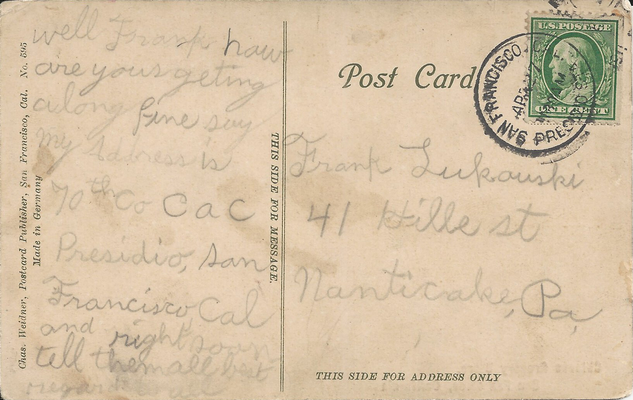 well Frank how
are yous geting
along fine say
My address is
70th Co C a C
Presidio, San
Francisco Cal
and right soon
tell them all best
regards
Chas. Weidner, Postcard Publisher, San Francisco, Cal. No. 595
Made in Germany
THIS SIDE FOR MESSAGE.
Post Card
U.S. POSTAGE
ONE CENT
SAN FRANCISCO, CAL
PRESIDIO
Frank Lukowski
41 Hille st
Nanticoke, Pa,
THIS SIDE FOR ADDRESS ONLY